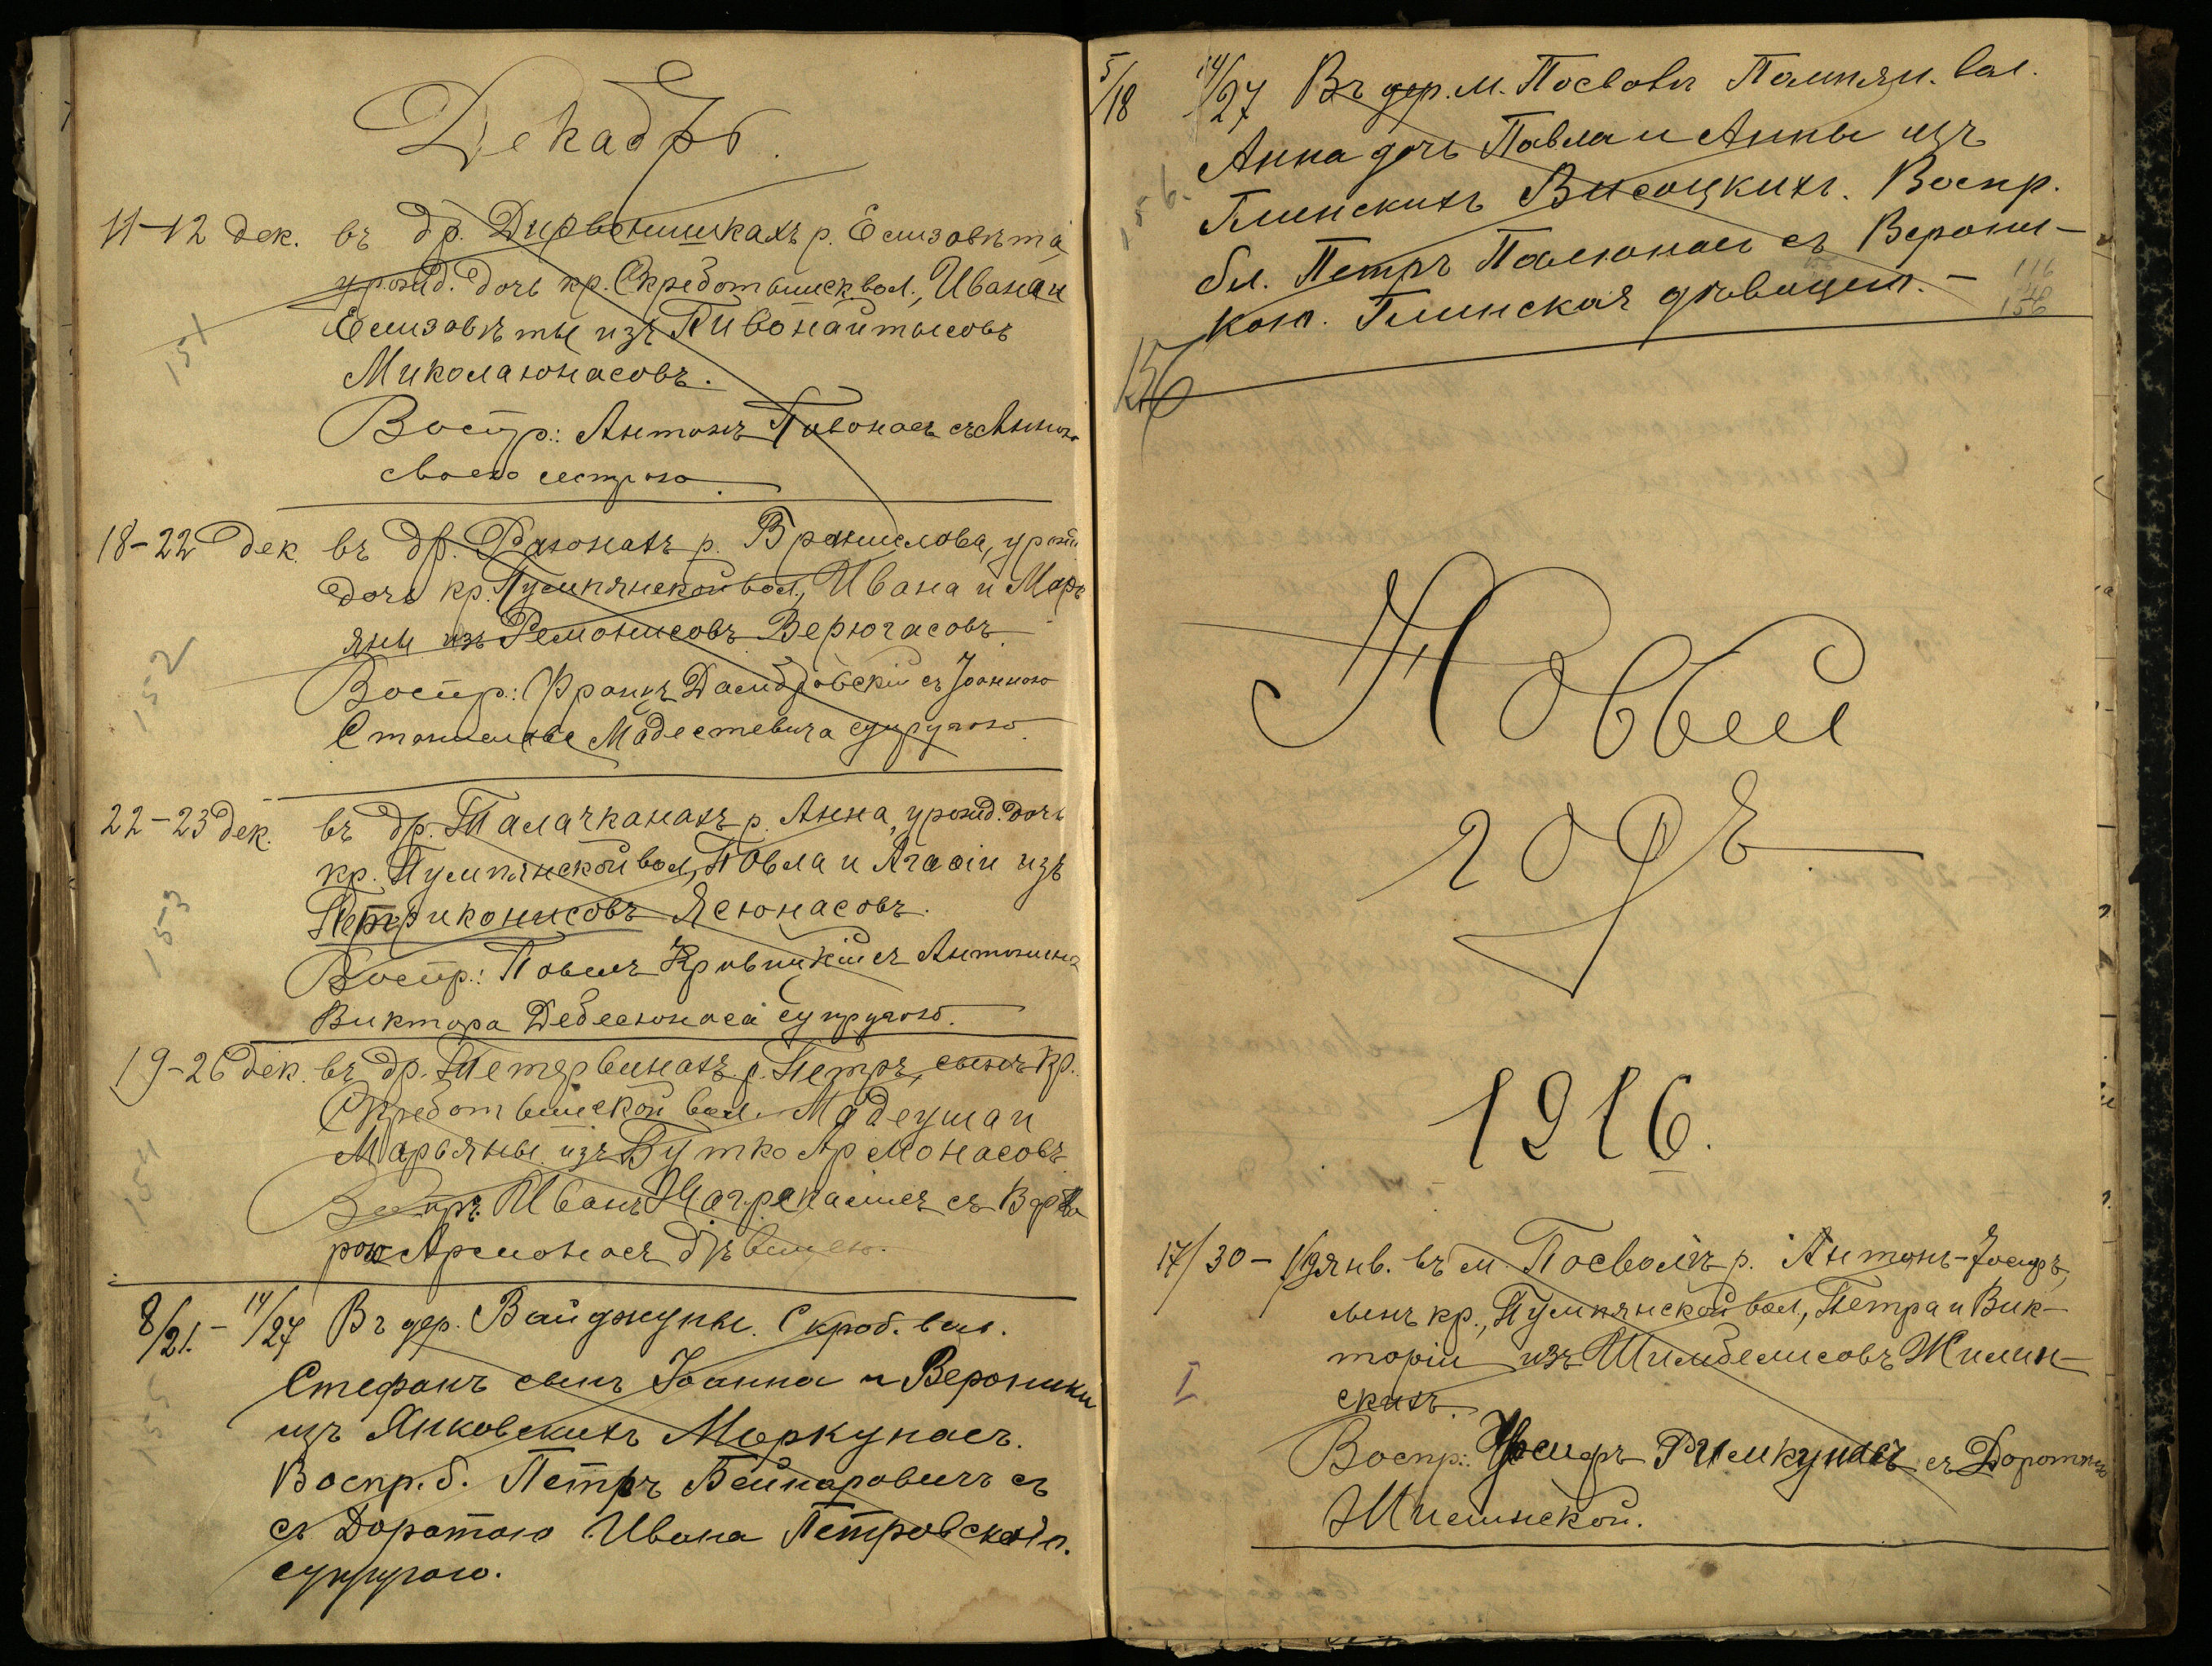 Декабрь.
11-12 дек. въ др. Дирвонишкахъ р. Елизавѣта,
урожд. дочь кр. Скреботышск. вол., Ивана и
Елизавѣты изъ Пивонайтысовъ
151
Миколаюнасовъ.
Воспр.: Антонъ Пивонасъ съ Анною
своею сестрою.
18-22 дек. въ др. Раюнахъ р. Бронислова, урожд.
дочь кр. Пумпянской вол., Ивана и Марь
яны изъ Ремонисовъ Верюгасовъ.
152
Воспр.: Францъ Домбровскій съ Іоанною
Станислава Модестевича супругою.
22-23 дек. въ др. Талачканахъ р. Анна, урожд. дочь
кр. Пумпянской вол., Повла и Агасіи изъ
153
Петриконисовъ Ясюнасовъ.
Воспр.: Повелъ Кривицкій съ Антонина
Виктора Дебесюнаса супругою.
19-26 дек. въ др. Тетервинахъ р. Петръ, сынъ кр.
Скреботышской вол. Мадеуша и
154
Марьяны изъ Бутко Армонасовъ.
Воспр. Иванъ съ Варва
рою Армонасъ дѣвицею.
8/21. - 14/27 Въ дер. Вайджуны. Скроб. вол.
155
Стефанъ сынъ Іоанна и Вероники
изъ Янковскихъ Моркунасъ.
Воспр. б. Петръ Бейнаровичъ съ
съ Доротою Ивана Петровскаго.
супругою.
5/18 14/27 Въ дер. м. Посволь Помпян. вол.
Анна дочь Павла и Анны изъ
156.
Глинскихъ Висоцкихъ. Воспр.
бл. Петръ Палюнасъ съ Верони-
кою. Глинская дѣвицею. -
116
40
156
156
Новый
годъ
1916.
17/30 - 1/19 янв. въ м. Посволѣ р. Антонъ-Іосифъ,
сынъ кр., Пумпянской вол., Петра и Вик-
торіи изъ Шимбелисовъ Жилин-
I
скихъ.
Воспр.: Іосифъ Римкунасъ съ Доротею
Жилинской.